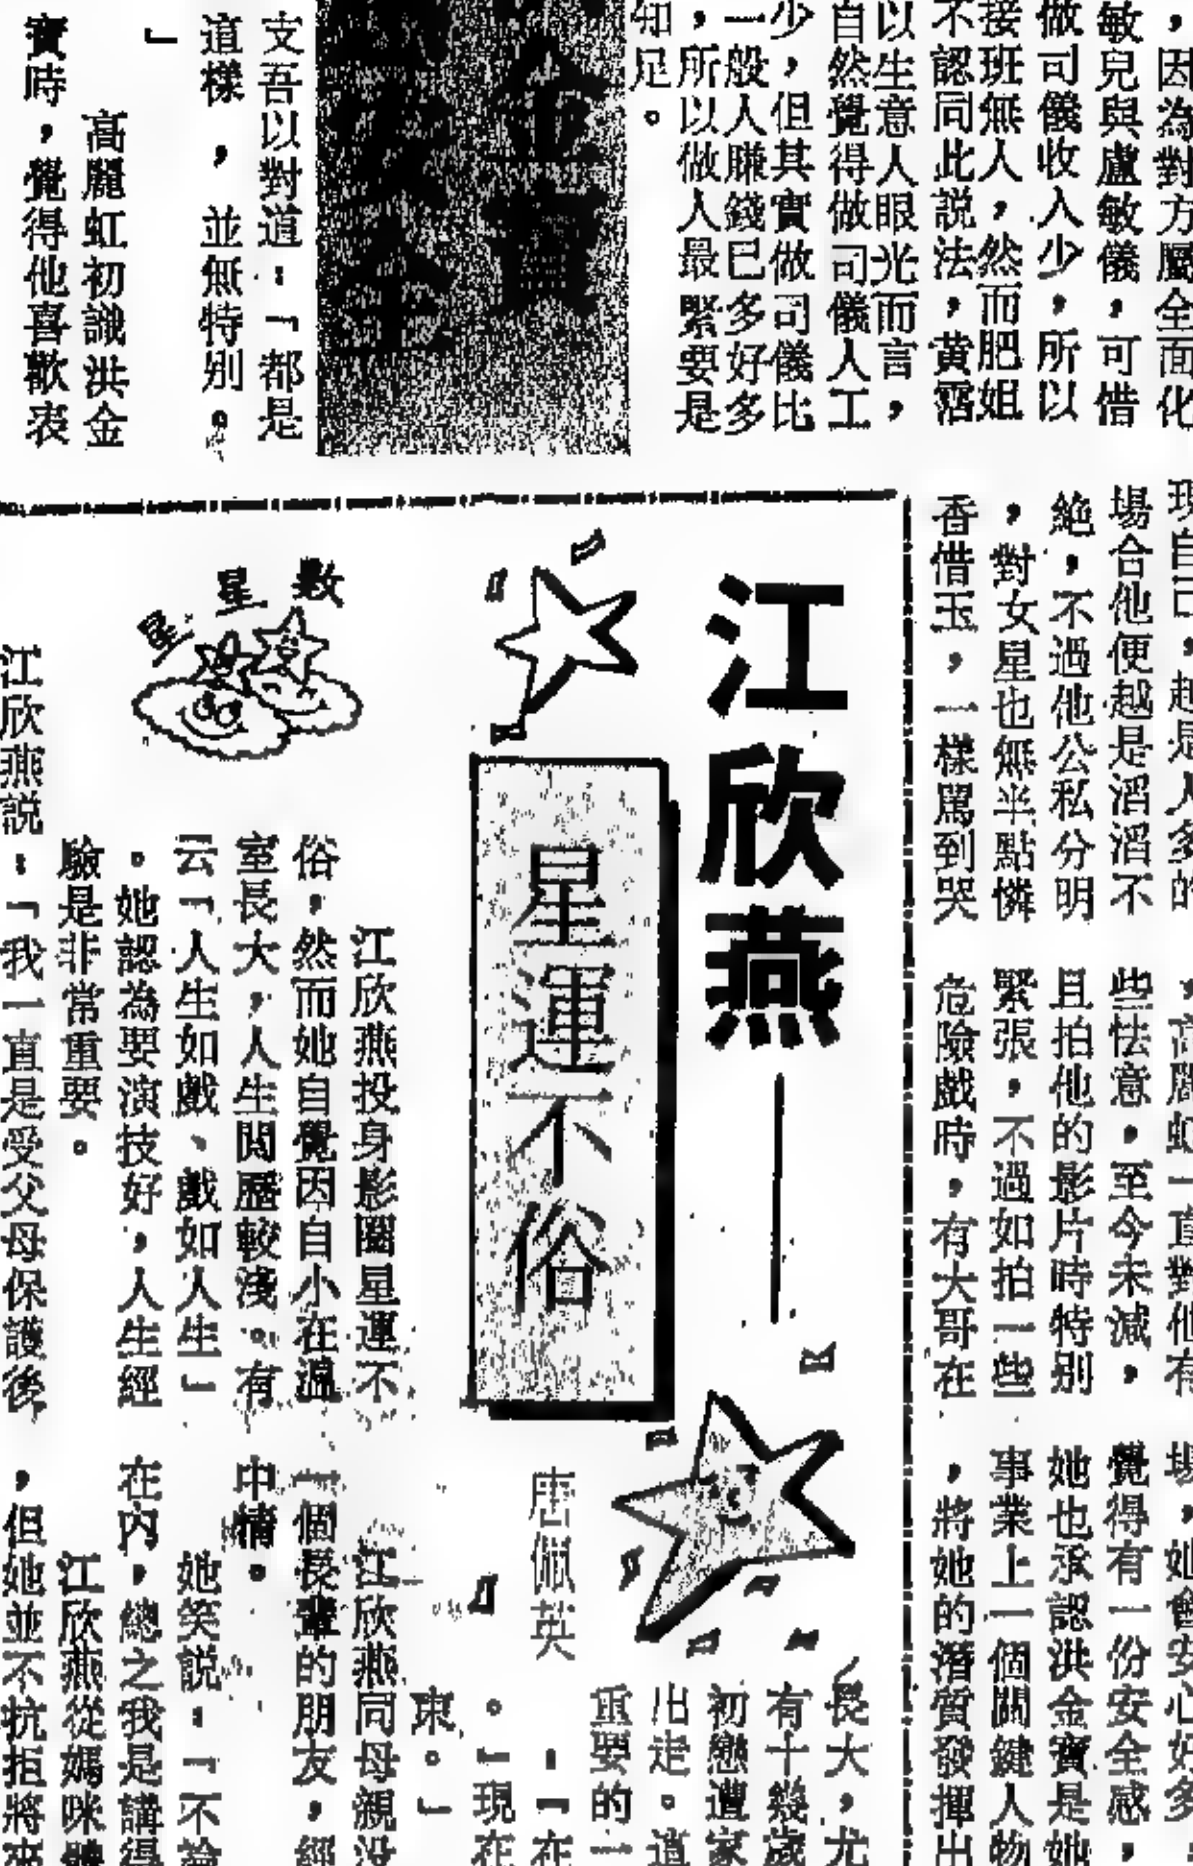 ，因為對方屬全面化
敏兒與盧敏儀，可惜
做司儀收入少，所以
接班無人，然而肥姐
不認同此説法，黃霑
以生意人眼光而言，
自然覺得做司儀人工
少，但其實做司儀比
一般人賺錢已多好多
，所以做人最緊要是
知足。
金寶
支吾以對道：「都是
這樣，並無特別。
」
高麗虹初識洪金
寶時，覺得他喜歡表
現自己，越是人多的
場合他便越是滔滔不
絶，不過他公私分明
，對女星也無半點憐
香惜玉，一樣罵到哭
，高麗虹一直對他有
些怯意，至今未減，
且拍他的影片時特別
緊張，不過如拍一些
危險戲時，有大哥在
場，她會安心好多，
覺得有一份安全感，
她也承認洪金寶是她
事業上一個關鍵人物
，將她的潛質發揮出
江欣燕——
星運不俗
唐佩英
星星數
江欣燕投身影圈星運不
俗，然而她自覺因自小在溫
室長大，人生閲歷較淺。有
云「人生如戲、戲如人生」
。她認為要演技好，人生經
驗是非常重要。
江欣燕説：「我一直是受父母保護後
長大，尤
有十幾歲
初戀遭家
出走。這
重要的一
：「在
。」現在
東。」
江欣燕同母親没
一個長輩的朋友，經
中情。
她笑説：「不論
在内，總之我是講得
江欣燕從媽咪
，但她並不抗拒將來